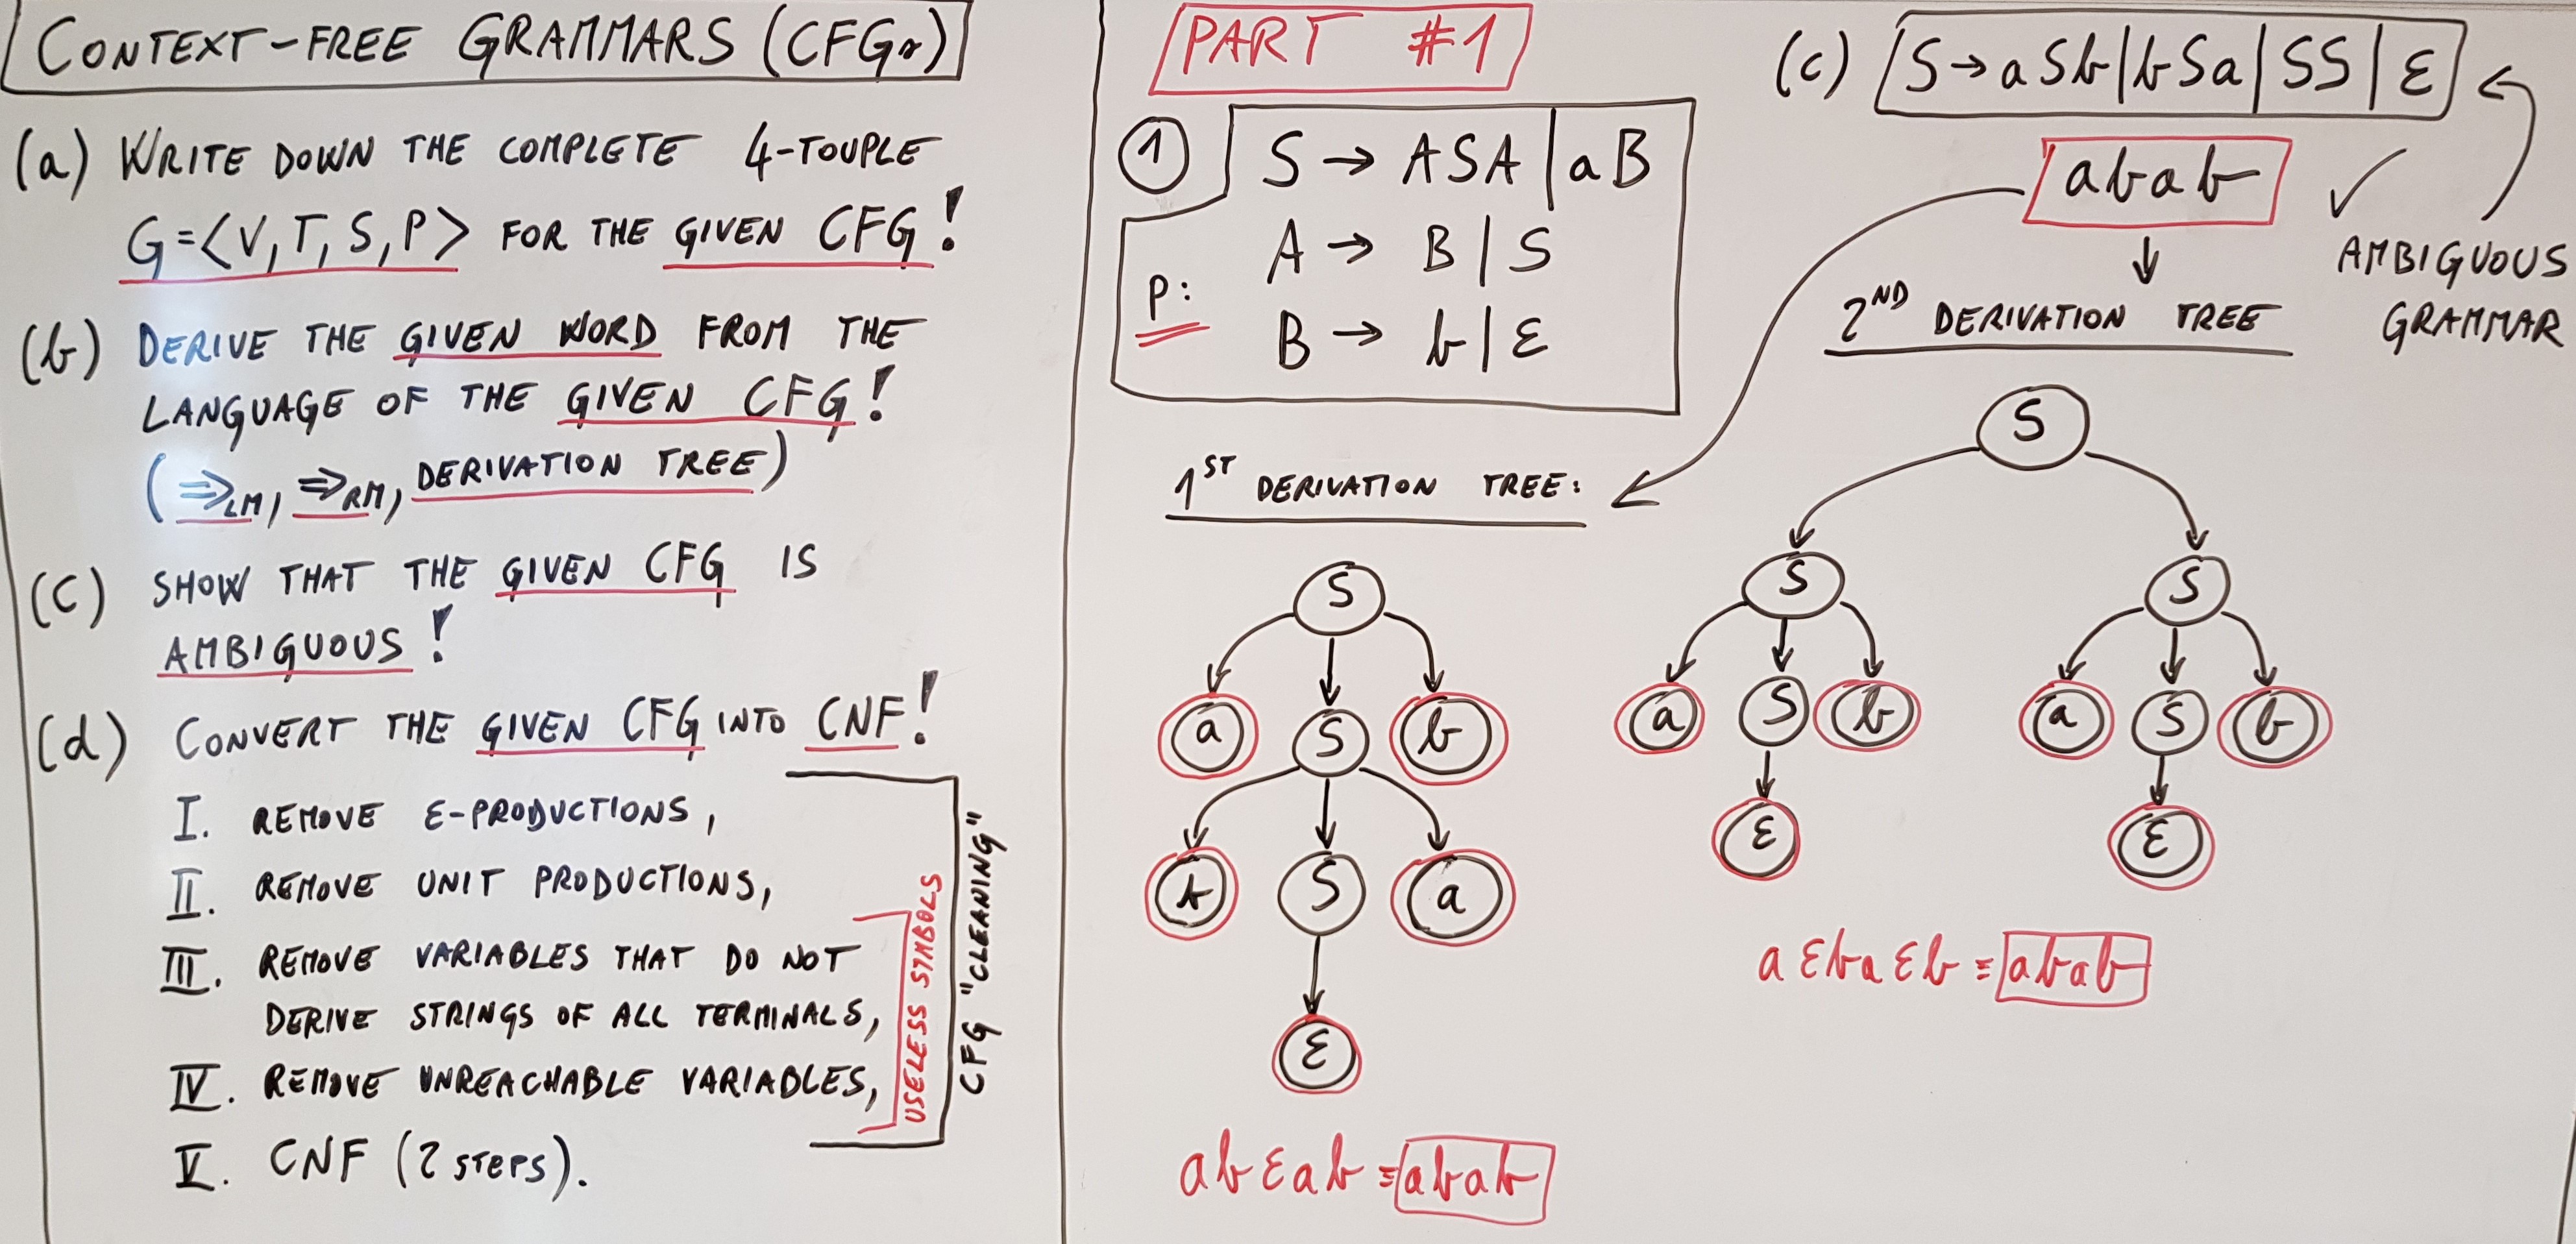 CONTEXT-FREE GRAMMARS (CFGs)
(a) WRITE DOWN THE COMPLETE 4-TOUPLE
G=<V,T,S,P> FOR THE GIVEN CFG!
(b) DERIVE THE GIVEN WORD FROM THE
LANGUAGE OF THE GIVEN CFG!
(⇒LM, ⇒RM, DERIVATION TREE)
(c) SHOW THAT THE GIVEN CFG IS
AMBIGUOUS!
(d) CONVERT THE GIVEN CFG INTO CNF!
I. REMOVE ε-PRODUCTIONS,
II. REMOVE UNIT PRODUCTIONS,
III. REMOVE VARIABLES THAT DO NOT
DERIVE STRINGS OF ALL TERMINALS,
IV. REMOVE UNREACHABLE VARIABLES,
V. CNF (2 STEPS).
USELESS SYMBOLS
CFG "CLEANING"
PART #1
1 S → ASA | aB
P: A → B | S
B → b | ε
1ST DERIVATION TREE:
S
a S b
b S a
ε
abεab ≡ abab
(c) S → aSb | bSa | SS | ε
abab ✓
↓
AMBIGUOUS
GRAMMAR
2ND DERIVATION TREE
S
S S
a S b a S b
ε ε
aεbaεb ≡ abab